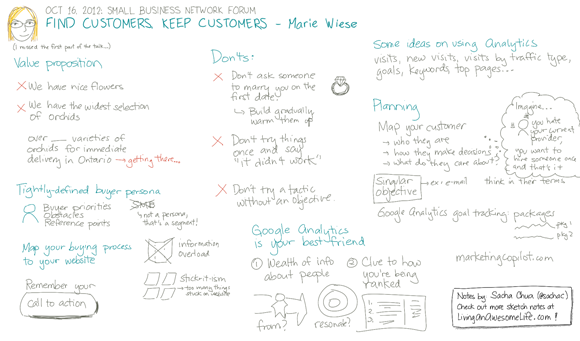 OCT 16, 2012: SMALL BUSINESS NETWORK FORUM
FIND CUSTOMERS, KEEP CUSTOMERS - Marie Wiese
(I missed the first part of the talk...)
Value proposition
We have nice flowers
We have the widest selection
of orchids
over ___ varieties of
orchids for immediate
delivery in Ontario → getting there...
Tightly-defined buyer persona
Buyer priorities
Obstacles
Reference points
SMB
not a persona,
that's a segment!
Map your buying process
to your website
Information
overload
Remember your
call to action
Stick-it-ism
→ too many things
stuck on website
Don'ts:
Don't ask someone
to marry you on the
first date!
↳ Build gradually,
warm them up
Don't try things
once and say
"it didn't work"
Don't try a tactic
without an objective
Google Analytics
is your best friend
① Wealth of info
about people
from?
resonate?
② Clue to how
you're being
ranked
1.
2.
3.
Some ideas on using Analytics
visits, new visits, visits by traffic type,
goals, keywords, top pages...
Planning
Map your customer
→ who they are
→ how they make decisions
→ what do they care about?
Imagine...
you hate
your current
provider,
you want to
hire someone new
and that's it
Singular
objective
→ ex: e-mail
think in their terms
Google Analytics goal tracking packages
pkg 1
pkg 2
marketingcopilot.com
Notes by Sacha Chua (@sachac)
Check out more sketch notes at
LivingAnAwesomeLife.com !